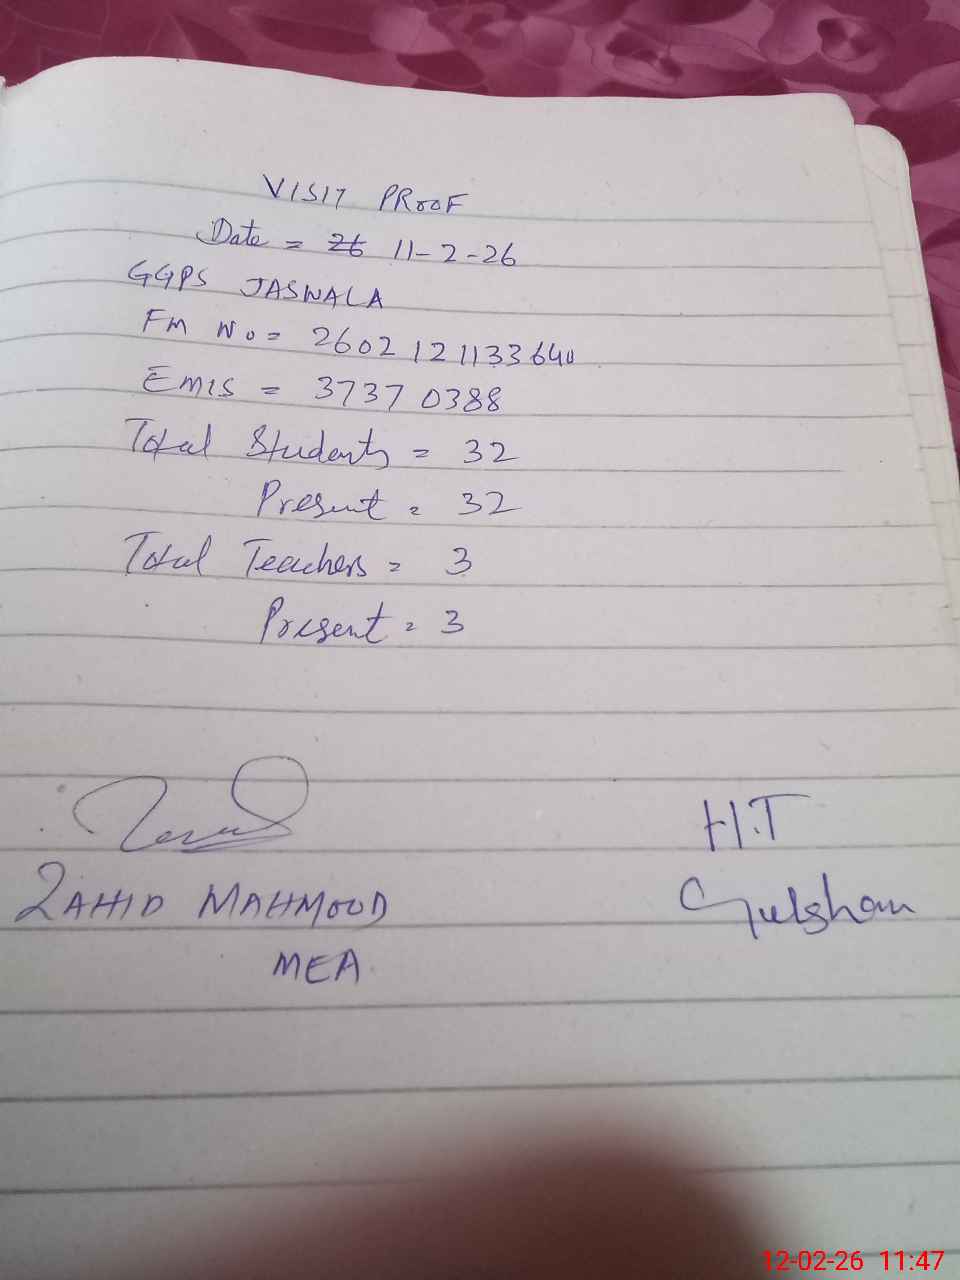 VISIT PROOF
Date = 26 11-2-26
GGPS JASWALA
FM No = 2602121133640
EMIS = 37370388
Total Students = 32
Present = 32
Total Teachers = 3
Present = 3
H.T
ZAHID MAHMOOD
Gulshan
MEA
12-02-26 11:47